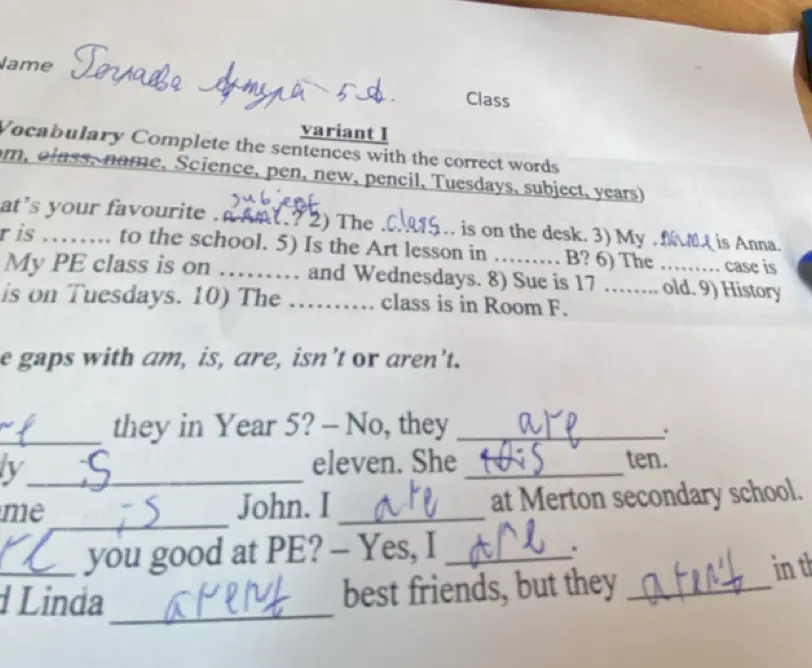 Name 5 A. Class
variant I
Vocabulary Complete the sentences with the correct words
om, class, name, Science, pen, new, pencil, Tuesdays, subject, years)
at's your favourite subject ? 2) The .class.. is on the desk. 3) My .name is Anna.
r is ........ to the school. 5) Is the Art lesson in ......... B? 6) The ......... case is
My PE class is on ......... and Wednesdays. 8) Sue is 17 ........ old. 9) History
is on Tuesdays. 10) The .......... class is in Room F.
e gaps with am, is, are, isn't or aren't.
re they in Year 5? – No, they are.
ly is eleven. She is ten.
me is John. I are at Merton secondary school.
re you good at PE? – Yes, I are.
d Linda arent best friends, but they aren't in th